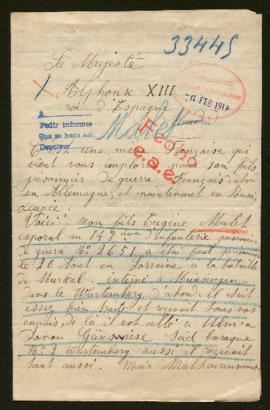 33445
Sa Majesté
Alphonse XIII
roi d'Espagne
Pedir informes
Que se haga así
Devolver
FEB 1917
C'est une mère française qui
vient vous implorer pour son fils
prisonnier de guerre français d'abord
en Allemagne, et maintenant en Russie
occupée.
Voici mon fils Eugène Mulet
caporal au 158 d'infanterie prisonnier
de guerre No 2651 a été fait prisonnier
le 21 Août en Lorraine à la bataille
de interné à Munsingen
dans le Wurtemberg d'abord il était
assez bien traité et recevait tous nos
envois, de là il est allé à Ulm a
Donau Gänswiese Sud baraque
No 2 Wurtemberg aussi il recevait
tout aussi. Mais Malheureusement